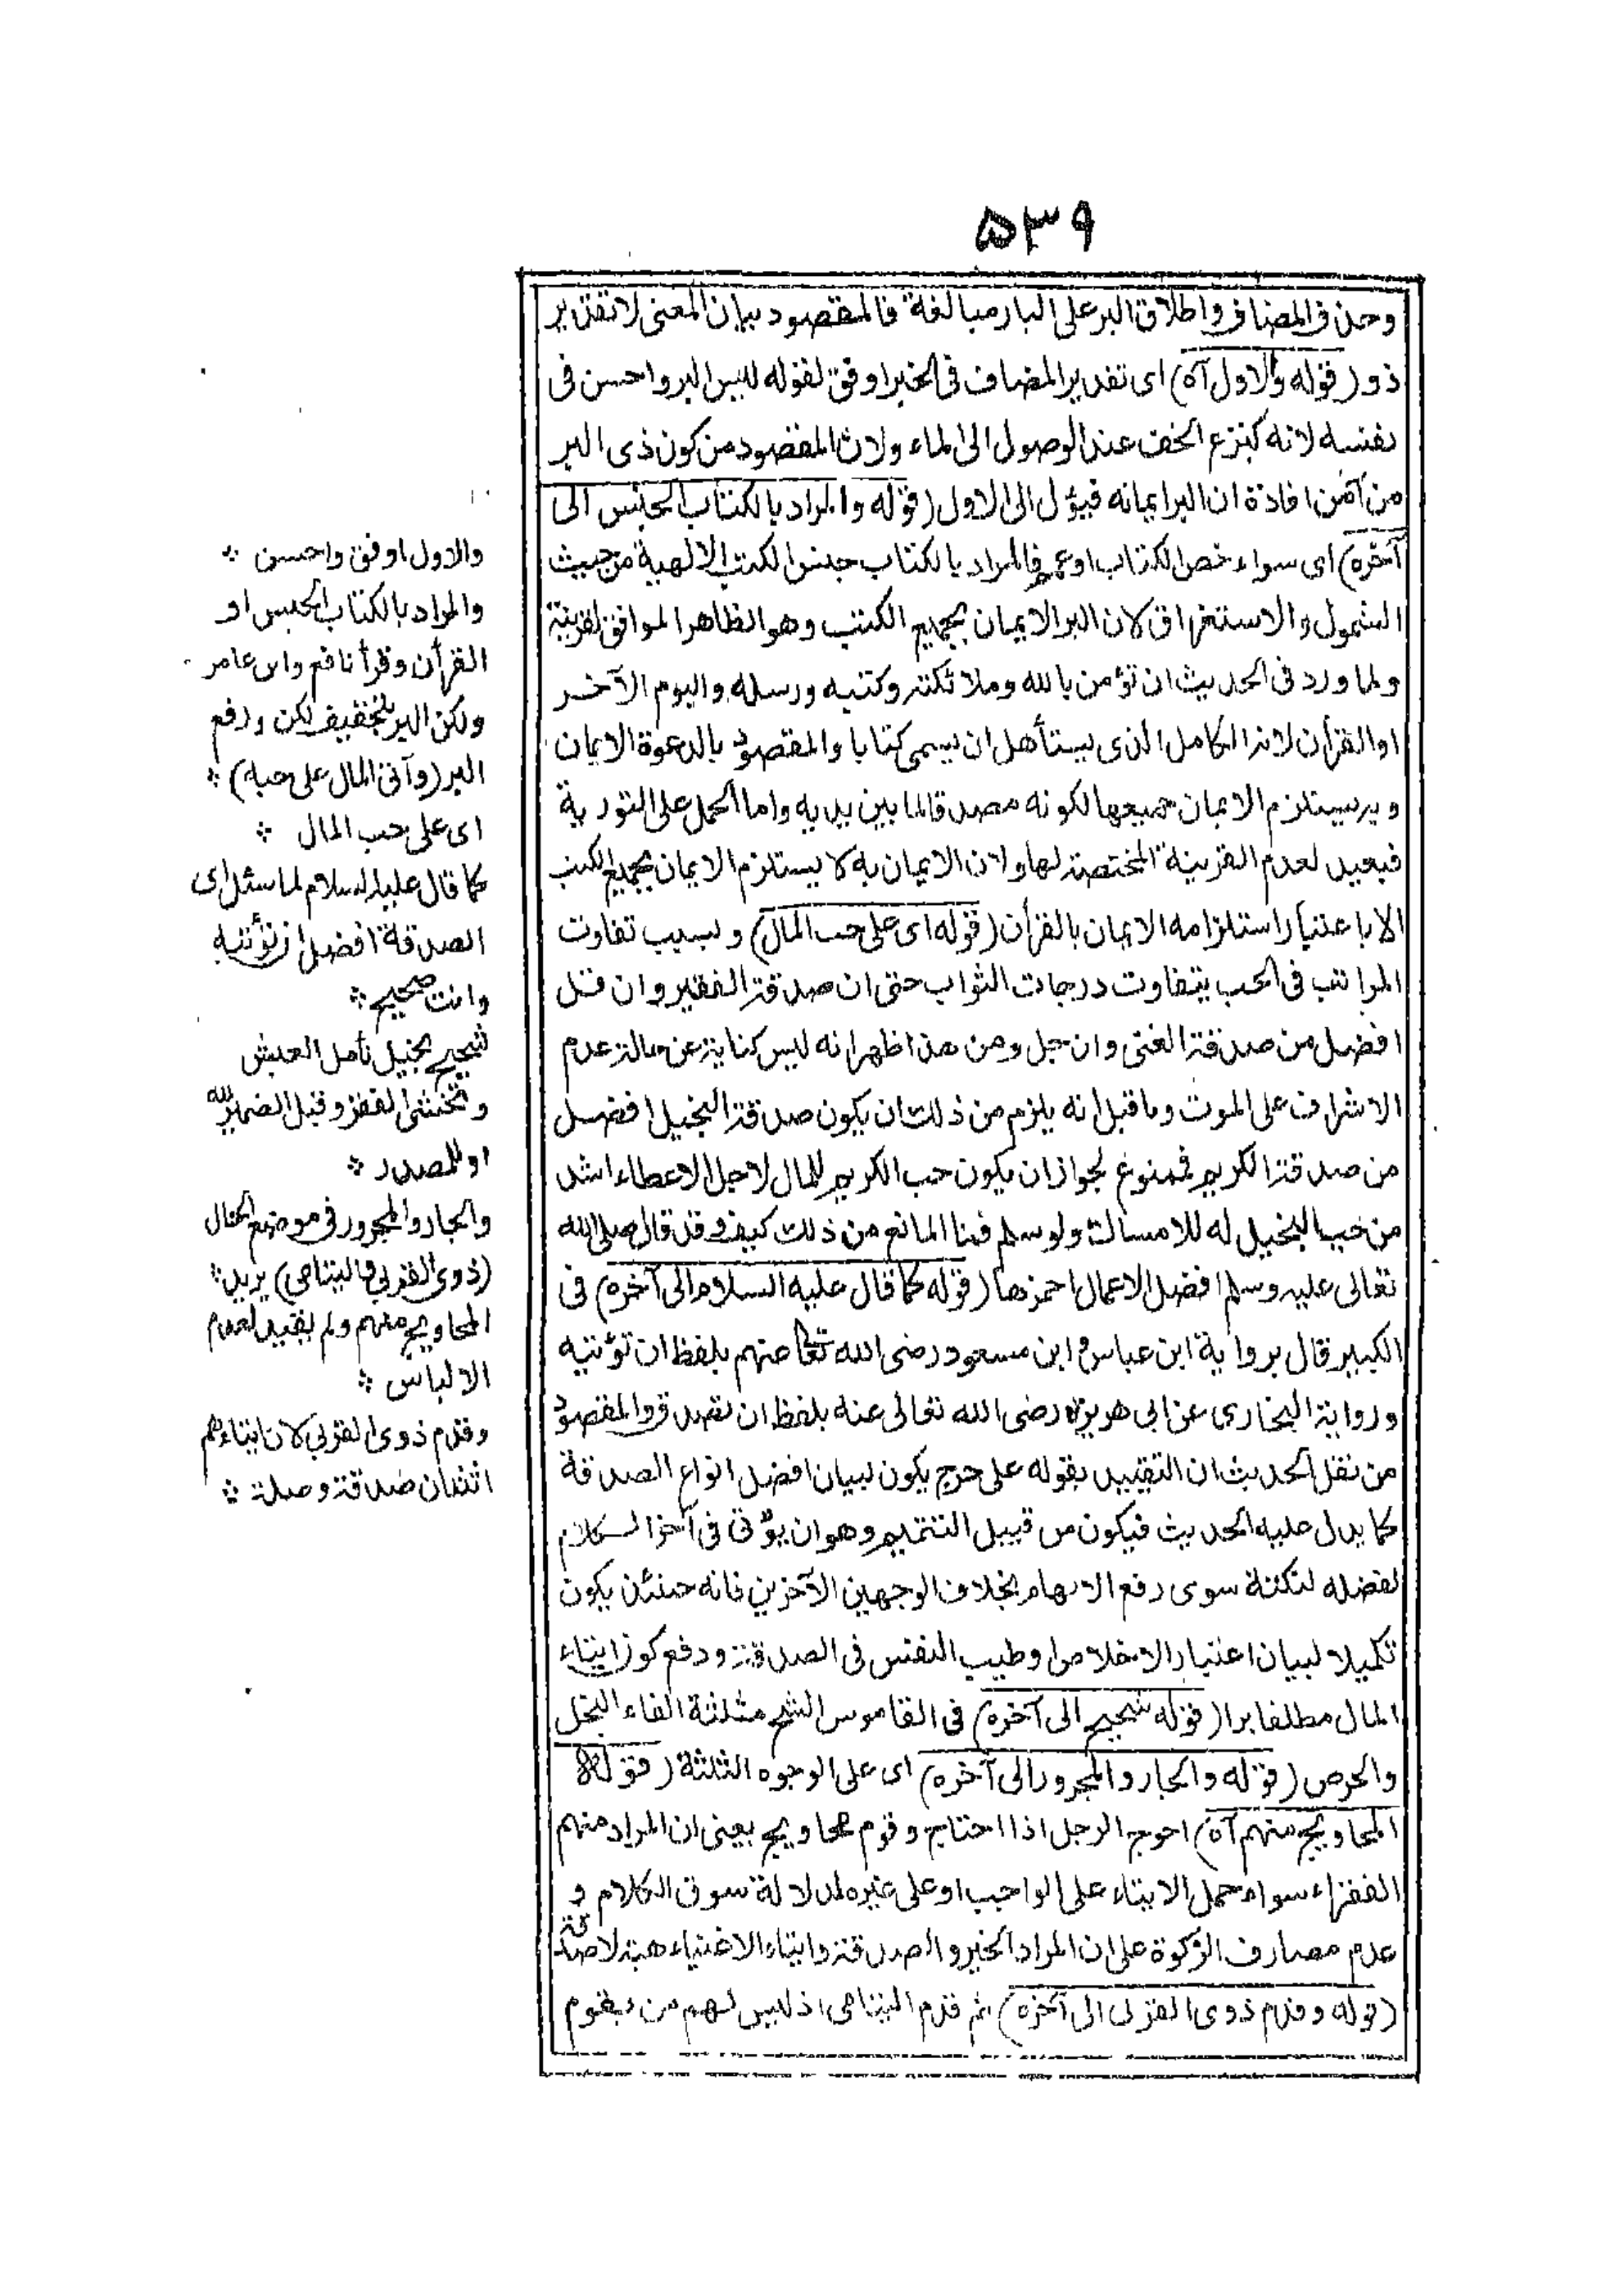 ٥٣٩
وحذف المضاف واطلاق البر على البار مبالغة فالمقصود بيان المعنى لا تقدير
ذو (قوله والاول آه) اى تقدير المضاف فى الخبر اوفق لقوله ليس البر واحسن فى
نفسه لانه كنزع الخف عند الوصول الى الماء ولان المقصود من كون ذى البر
من آمن افادة ان البر ايمانه فيؤل الى الاول (قوله والمراد بالكتاب الجنس الى
آخره) اى سواء خص الكتاب او عمم فالمراد بالكتاب جنس الكتب الالهية من حيث
الشمول والاستغراق لان البر الايمان بجميع الكتب وهو الظاهر الموافق لقرينة
ولما ورد فى الحديث ان تؤمن بالله وملائكته وكتبه ورسله واليوم الآخر
او القرأن لانه الكامل الذى يستأهل ان يسمى كتابا والمقصود بالدعوة الايمان
وبه يستلزم الايمان جميعها لكونه مصدقا لما بين يديه واما الحمل على التورية
فبعيد لعدم القرينة المختصة لها ولان الايمان به لا يستلزم الايمان بجميع الكتب
الا باعتبار استلزامه الايمان بالقرأن (قوله اى على حب المال) وبسبب تفاوت
المراتب فى الحب يتفاوت درجات الثواب حتى ان صدقة الفقير وان قل
افضل من صدقة الغنى وان جل ومن هذا ظهر انه ليس كناية عن حالة عدم
الاشراف على الموت وما قيل انه يلزم من ذلك ان يكون صدقة البخيل افضل
من صدقة الكريم فممنوع لجواز ان يكون حب الكريم للمال لاجل الاعطاء اشد
من حب البخيل له للامساك ولو سلم فما المانع من ذلك كيف وقد قال صلى الله
تعالى عليه وسلم افضل الاعمال احمزها (قوله كما قال عليه السلام الى آخره) فى
الكبير قال برواية ابن عباس وابن مسعود رضى الله تعا عنهم بلفظ ان تؤتيه
ورواية البخارى عن ابى هريرة رضى الله تعالى عنه بلفظ ان تصدق والمقصود
من نقل الحديث ان التقييد بقوله على حبه يكون لبيان افضل انواع الصدقة
كما يدل عليه الحديث فيكون من قبيل التتميم وهو ان يؤتى فى آخر الكلام
لفضله لنكتة سوى رفع الابهام بخلاف الوجهين الآخرين فانه حينئذ يكون
تكميلا لبيان اعتبار الاخلاص وطيب النفس فى الصدقة ودفع كون ايتاء
المال مطلقا برا (قوله شحيح الى آخره) فى القاموس الشح مثلثة الفاء البخل
والحرص (قوله والجار والمجرور الى آخره) اى على الوجوه الثلثة (قوله
المحاويج منهم آه) احوج الرجل اذا احتاج وقوم محاويج يعنى ان المراد منهم
الفقراء سواء حمل الايتاء على الواجب او على غيره لدلالة سوق الكلام و
عدم مصارف الزكوة على ان المراد الخير والصدقة وايتاء الاغنياء هبة لا صدقة
(قوله وقدم ذوى القربى الى آخره) ثم قدم اليتامى اذ ليس لهم من يقوم
والاول اوفق واحسن
والمراد بالكتاب الجنس او
القرأن وقرأ نافع وابن عامر
ولكن البر بتخفيف لكن ورفع
البر (وآتى المال على حبه)
اى على حب المال
كما قال عليه السلام لما سئل اى
الصدقة افضل ان تؤتيه
وانت صحيح
شحيح بخيل تأمل العيش
وتخشى الفقر وقيل الضمير لله
او للمصدر
والجار والمجرور فى موضع الحال
(ذوى القربى واليتامى) يريد
المحاويج منهم ولم يقيد لعدم
الالباس
وقدم ذوى القربى لان ايتاءهم
اثنتان صدقة وصلة